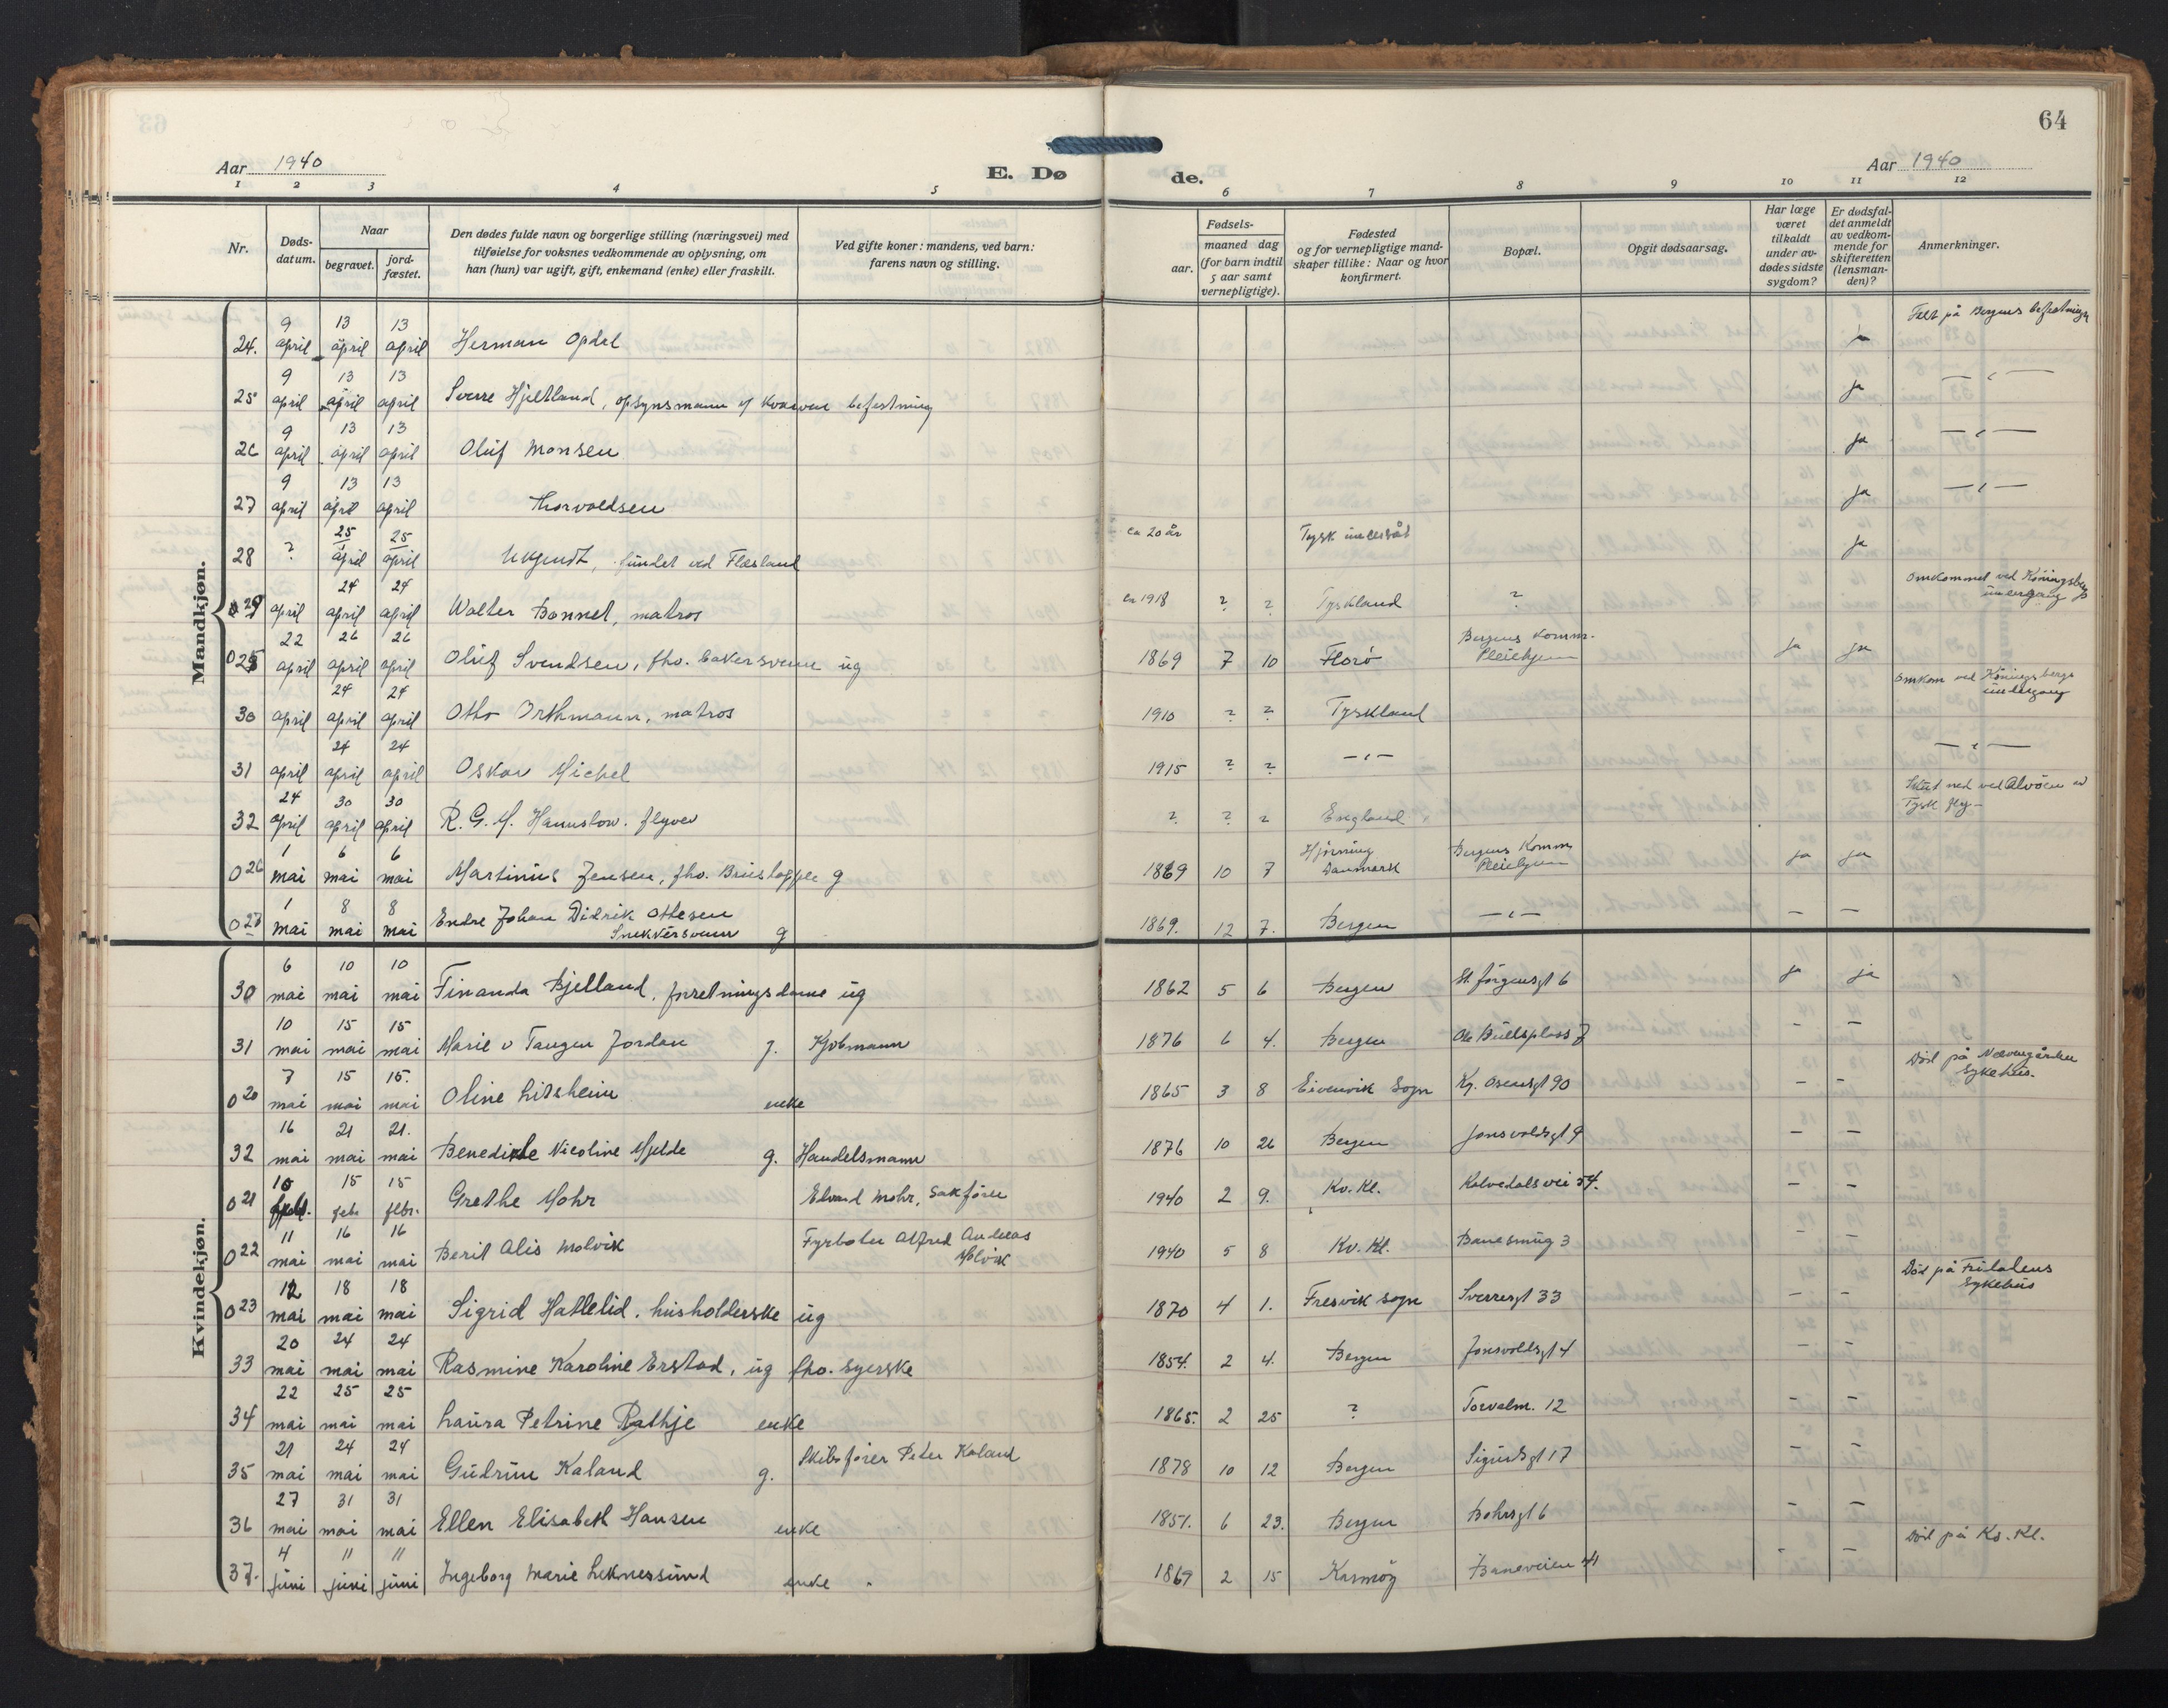 64
Aar 1940
E. Dø
de.
Aar 1940
1 2 3 4 5 6 7 8 9 10 11 12
Nr.
Døds-
datum.
Naar
begravet.
jord-
fæstet.
Den dødes fulde navn og borgerlige stilling (næringsvei) med
tilføielse for voksnes vedkommende av oplysning, om
han (hun) var ugift, gift, enkemand (enke) eller fraskilt.
Ved gifte koner: mandens, ved barn:
farens navn og stilling.
Fødsels-
aar.
maaned dag
(for barn indtil
5 aar samt
vernepligtige).
Fødested
og for vernepligtige mand-
skaper tillike: Naar og hvor
konfirmert.
Bopæl.
Opgit dødsaarsag.
Har læge
været
tilkaldt
under av-
dødes sidste
sygdom?
Er dødsfal-
det anmeldt
av vedkom-
mende for
skifteretten
(lensman-
den)?
Anmerkninger.
Mandkjøn.
24. 9 april 13 april 13 april Herman Opdal ja Falt på Bergens befestninger
25 9 april 13 april 13 april Sverre Hjeltland, opsynsmann v/ Kvarven befestning ja — " —
26 9 april 13 april 13 april Oluf Monsen ja — " —
27 9 april 13 april 13 april Thorvaldsen ja — " —
28 ? 25 april 25 april Ukjendt, fundet ved Flesland ca 20 år Tysk undersåt ja
29 april 24 april 24 april Walter Bonnet, matros ca 1918 ? ? Tyskland ? Omkommet ved Königsbergs undergang
025 22 april 26 april 26 april Oluf Svendsen, fho. bakersvenn ug 1869 7 10 Florø Bergens Komm. Pleiehjem ja ja
30 april 24 april 24 april Otto Orthmann, matros 1910 ? ? Tyskland Omkom ved Königsbergs undergang
31 april 24 april 24 april Oskar Michel 1915 ? ? — " — — " —
32 24 april 30 april 30 april R. G. M. flyver ? ? ? England Skut ned ved Alvöen av Tysk fly
026 1 mai 6 mai 6 mai Martinus Jensen, fho. g 1869 10 7 Hjørring Danmark Bergens Komm Pleiehjem ja ja
027 1 mai 8 mai 8 mai Endre Johan Didrik Ottesen
Snekkersvenn g 1869. 12 7. Bergen — " — — —
Kvindekjøn.
30 6 mai 10 mai 10 mai Finanda Bjelland, forretningsdame ug 1862 5 6 Bergen St. Jørgensgt 6 ja ja
31 10 mai 15 mai 15 mai Marie v Tangen Jordan g. Kjøbmann 1876 6 4. Bergen Ole Bullsplass 7 — —
020 7 mai 15 mai 15. mai Oline Litsheim enke 1865 3 8 Eivenvik Sogn Kg. Oscarsgt 90 — — Död på Nevengården Sykehus.
32 16 mai 21 mai 21. mai Benedikte Nicoline Mjelde g. Handelsmann 1876 10 26 Bergen Jonsvoldsgt 9 — —
021 10 febr. 15 feb. 15 febr. Grethe Mohr Edvard Mohr, Sakfører 1940 2 9. Kv. Kl. Kalvedalsvei 54. — —
022 11 mai 16 mai 16 mai Berit Alis Molvik Fyrbøter Alfred Andreas Molvik 1940 5 8 Kv. Kl. Banesmug 3 —
023 12 mai 18 mai 18 mai Sigrid Hatlelid, husholderske ug 1870 4 1. Fresvik sogn Sverresgt 33 — — Död på Fridalens Sykehus
33 20 mai 24 mai 24 mai Rasmine Karoline Erstad, ug fho. syerske 1854. 2 4. Bergen Jonsvoldsgt 4 — —
34 22 mai 25 mai 25 mai Laura Petrine Rathje enke 1865. 2 25 ? Torvalm. 12 — —
35 21 mai 24 mai 24 mai Gudrun Kaland g. Skibsfører Peter Kaland 1878 10 12 Bergen Sigurdsgt 17 — —
36 27 mai 31 mai 31 mai Ellen Elisabeth Hansen enke 1851. 6 23. Bergen Bohrsgt 6 — —
37. 4 juni 11 juni 11 juni Ingeborg Marie Leknessund enke 1869 2 15 Karmöy Baneveien 41 - — Död på Kv. Kl.